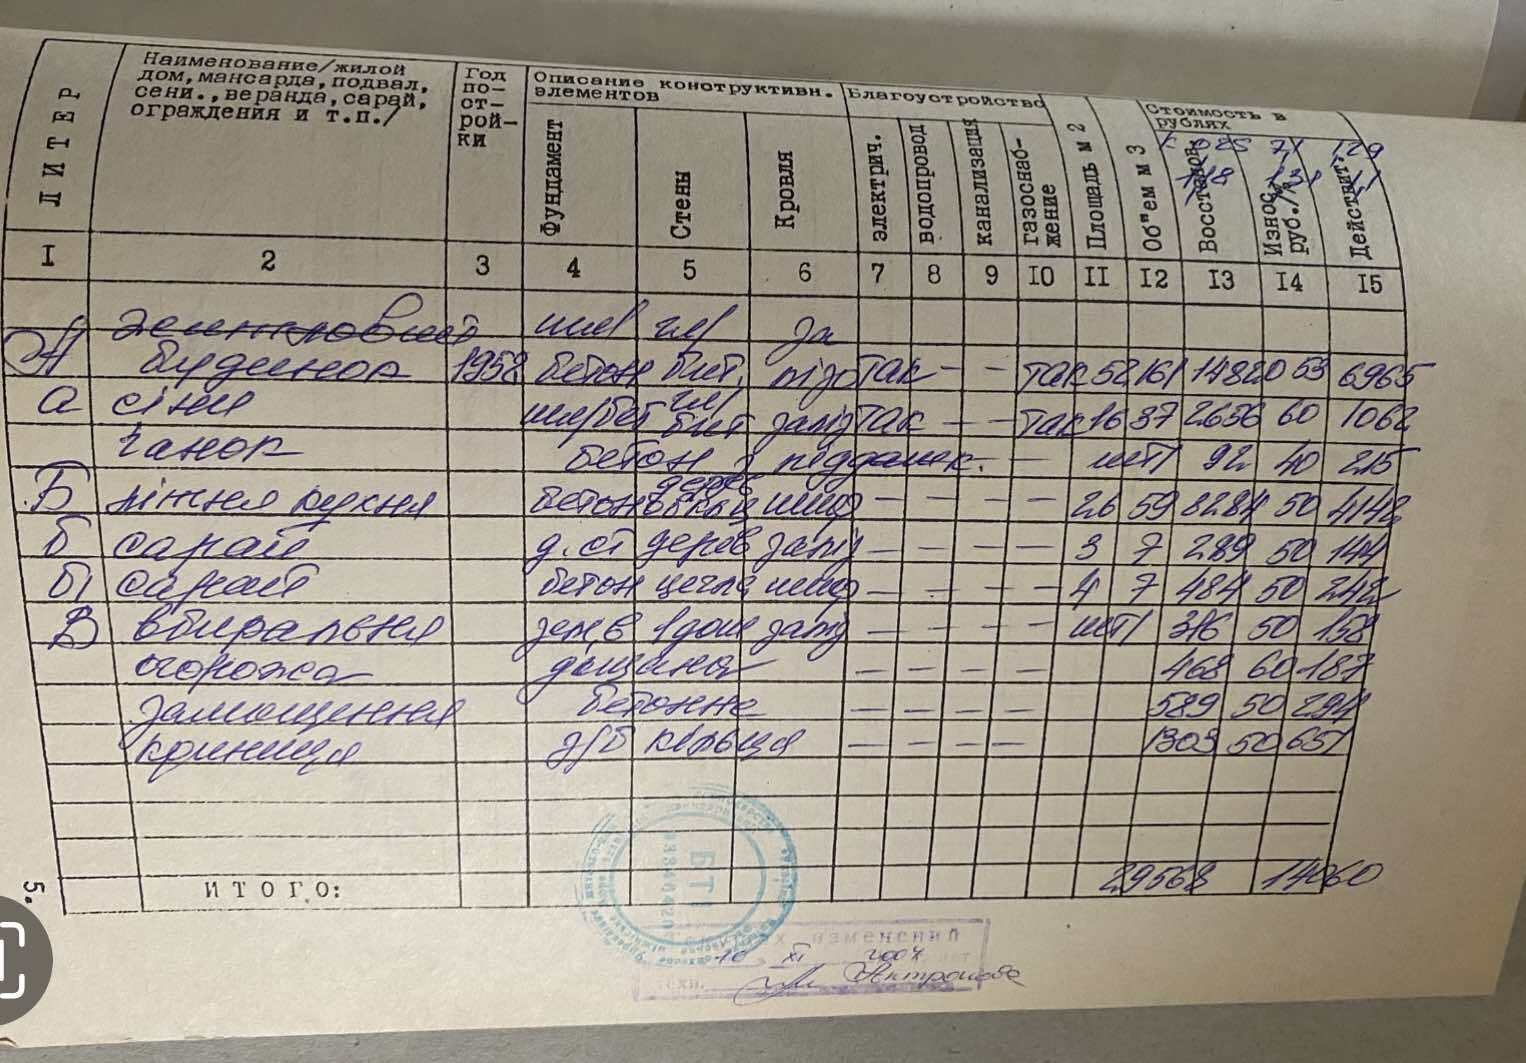 ЛИТЕР
Наименование/жилой
дом, мансарда, подвал,
сени., веранда, сарай,
ограждения и т.п./
Год
по-
ст-
рой-
ки
Описание конструктивн.
элементов
Фундамент
Стены
Кровля
Благоустройство
электрич.
водопровод
канализация
газоснаб-
жение
Площадь м 2
Об"ем м 3
Стоимость в
рублях
Восстанов.
Износ
руб./
Действит.
I 2 3 4 5 6 7 8 9 I0 II I2 I3 I4 I5
будинок 1958 бетон так - - так 52 161 14820 53 6965
а сіни шл/бет так - - так 16 37 2656 60 1062
ганок бетон з піддашек. - - шт1 92 40 215
Б літня кухня бетон - - - - 26 59 8284 50 4142
б сарай д.ст дерев заліз - - - - 3 7 289 50 144
б1 сарай бетон цегла шиф - - - - 4 7 484 50 242
В вбиральня дерев - - - - шт1 316 50 158
огорожа дощана - - - - 468 60 187
замощення бетонне - - - - 589 50 294
криниця з/б кільця - - - - 1303 50 651
ИТОГО: 29568 14060
БТІ
изменений
10 XI 2007
5.